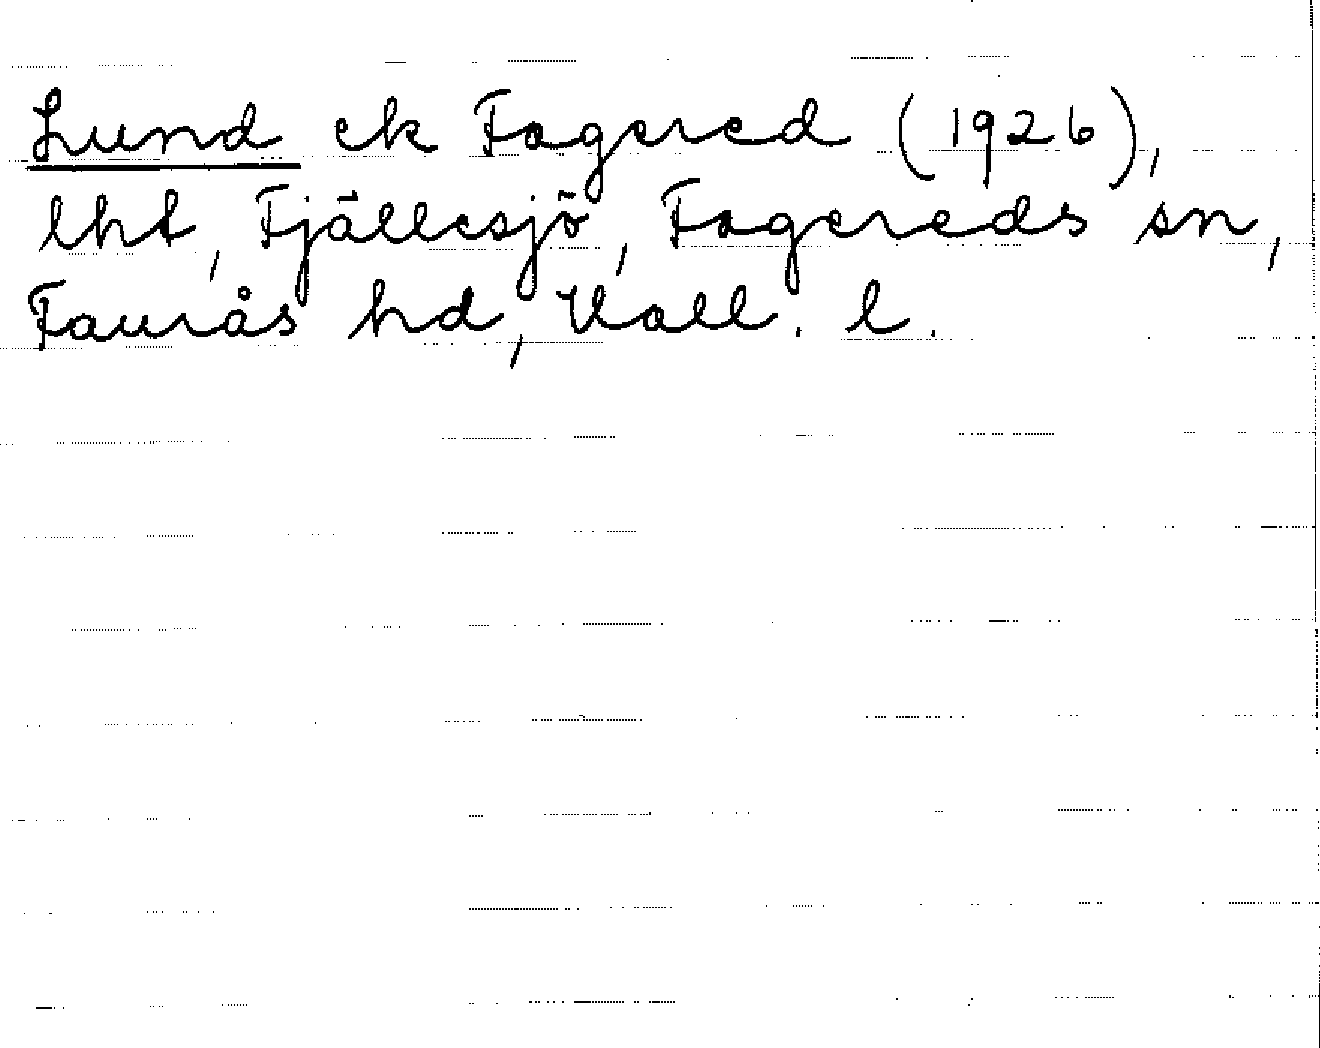 Lund ek Fagered (1926),
lht, Fjällesjö, Fagereds sn,
Faurås hd, Hall. l.